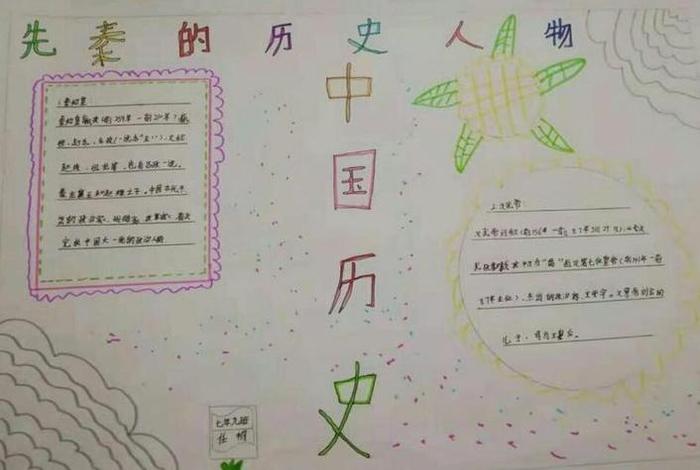 先秦的历史人物
中国历史
1.秦始皇
秦始皇嬴政(前259年—前210年),嬴
姓,赵氏,名政(一说名"正"),又称
赵政、祖龙等,也有吕政一说。
秦庄襄王和赵姬之子。中国古代
的政治家、战略家、改革家,首次
完成中国大一统的政治人物
2.汉武帝
汉武帝刘彻(前156年—前87年3月29日),
西汉第七位皇帝(前141年—前
87年在位),杰出的政治家、文学家。汉景帝刘启的
子,母为王皇后。
七年九班
任